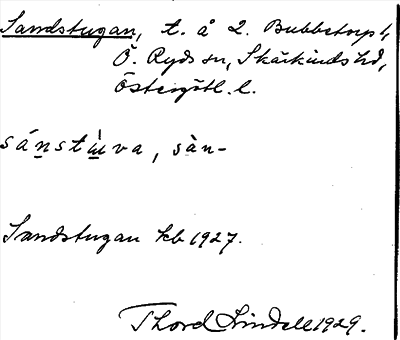 Sandstugan, t. å 2. Bubbetorp 1,
Ö. Ryds sn, Skärkinds hd,
Östergötl. l.
sánstùva, sàn-
Sandstugan kb 1927.
Thord Lindell 1929.